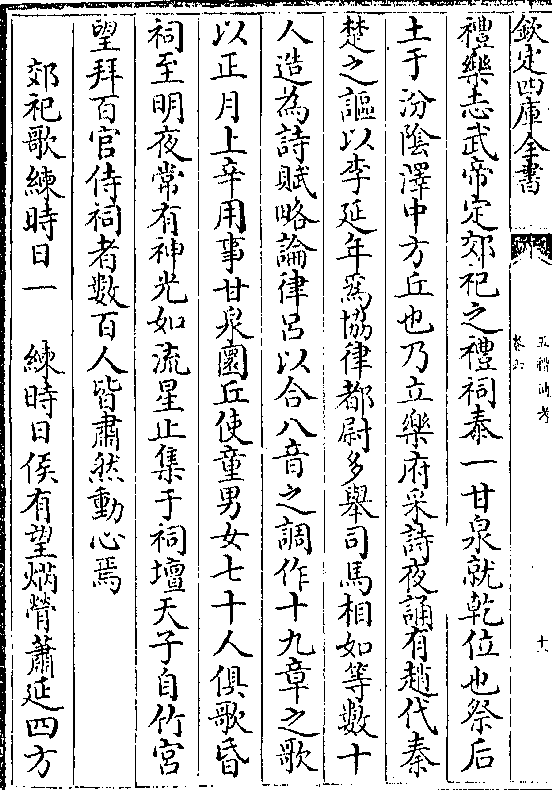 欽定四庫全書
五禮通考
卷六
十一
禮樂志武帝定郊祀之禮祠泰一甘泉就乾位也祭后
土于汾陰澤中方丘也乃立樂府采詩夜誦有趙代秦
楚之謳以李延年為協律都尉多舉司馬相如等數十
人造為詩賦略論律吕以合八音之調作十九章之歌
以正月上辛用事甘泉圜丘使童男女七十人俱歌昏
祠至明夜常有神光如流星止集于祠壇天子自竹宮
望拜百官侍祠者數百人皆肅然動心焉
郊祀歌練時日一　練時日侯有望焫膋蕭延四方